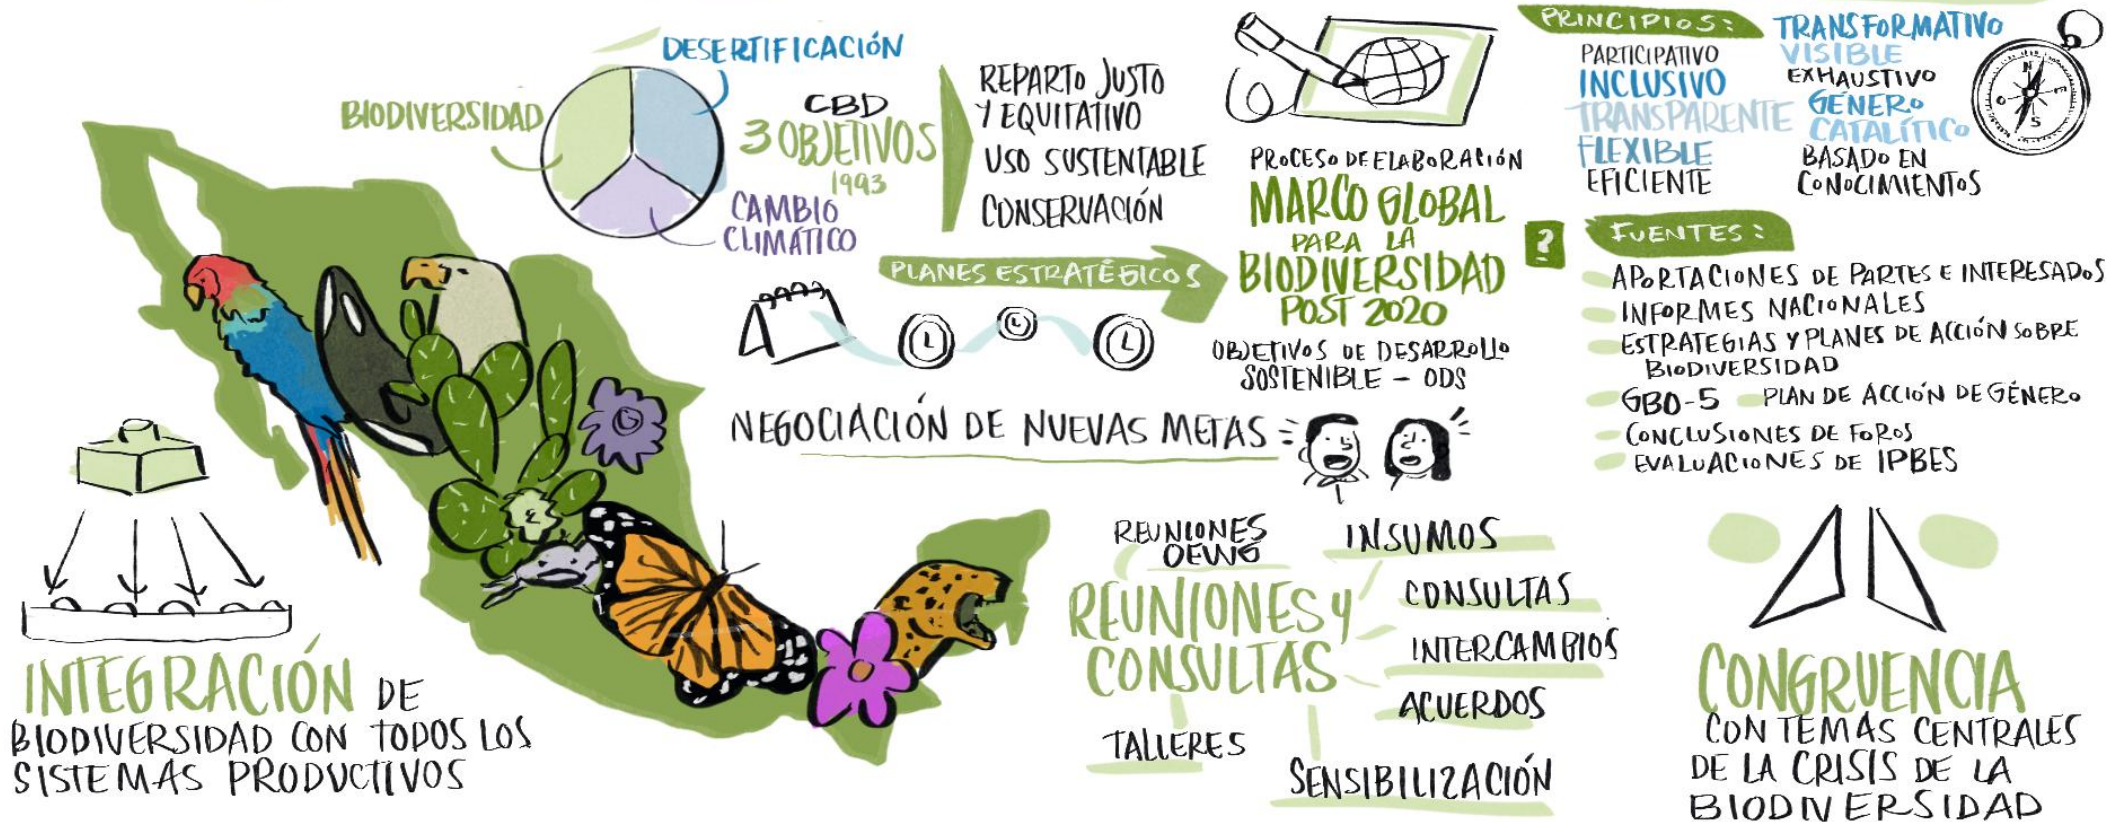 BIODIVERSIDAD
DESERTIFICACIÓN
CAMBIO
CLIMÁTICO
CBD
3 OBJETIVOS
1993
REPARTO JUSTO
Y EQUITATIVO
USO SUSTENTABLE
CONSERVACIÓN
PLANES ESTRATÉGICOS
PROCESO DE ELABORACIÓN
MARCO GLOBAL
PARA LA
BIODIVERSIDAD
POST 2020
OBJETIVOS DE DESARROLLO
SOSTENIBLE - ODS
PRINCIPIOS:
PARTICIPATIVO
INCLUSIVO
TRANSPARENTE
FLEXIBLE
EFICIENTE
TRANSFORMATIVO
VISIBLE
EXHAUSTIVO
GÉNERO
CATALÍTICO
BASADO EN
CONOCIMIENTOS
N
E
S
O
?
FUENTES:
APORTACIONES DE PARTES E INTERESADOS
INFORMES NACIONALES
ESTRATEGIAS Y PLANES DE ACCIÓN SOBRE
BIODIVERSIDAD
GBO-5 PLAN DE ACCIÓN DE GÉNERO
CONCLUSIONES DE FOROS
EVALUACIONES DE IPBES
NEGOCIACIÓN DE NUEVAS METAS
INTEGRACIÓN DE
BIODIVERSIDAD CON TODOS LOS
SISTEMAS PRODUCTIVOS
REUNIONES
OEWG
REUNIONES Y
CONSULTAS
TALLERES
INSUMOS
CONSULTAS
INTERCAMBIOS
ACUERDOS
SENSIBILIZACIÓN
CONGRUENCIA
CON TEMAS CENTRALES
DE LA CRISIS DE LA
BIODIVERSIDAD